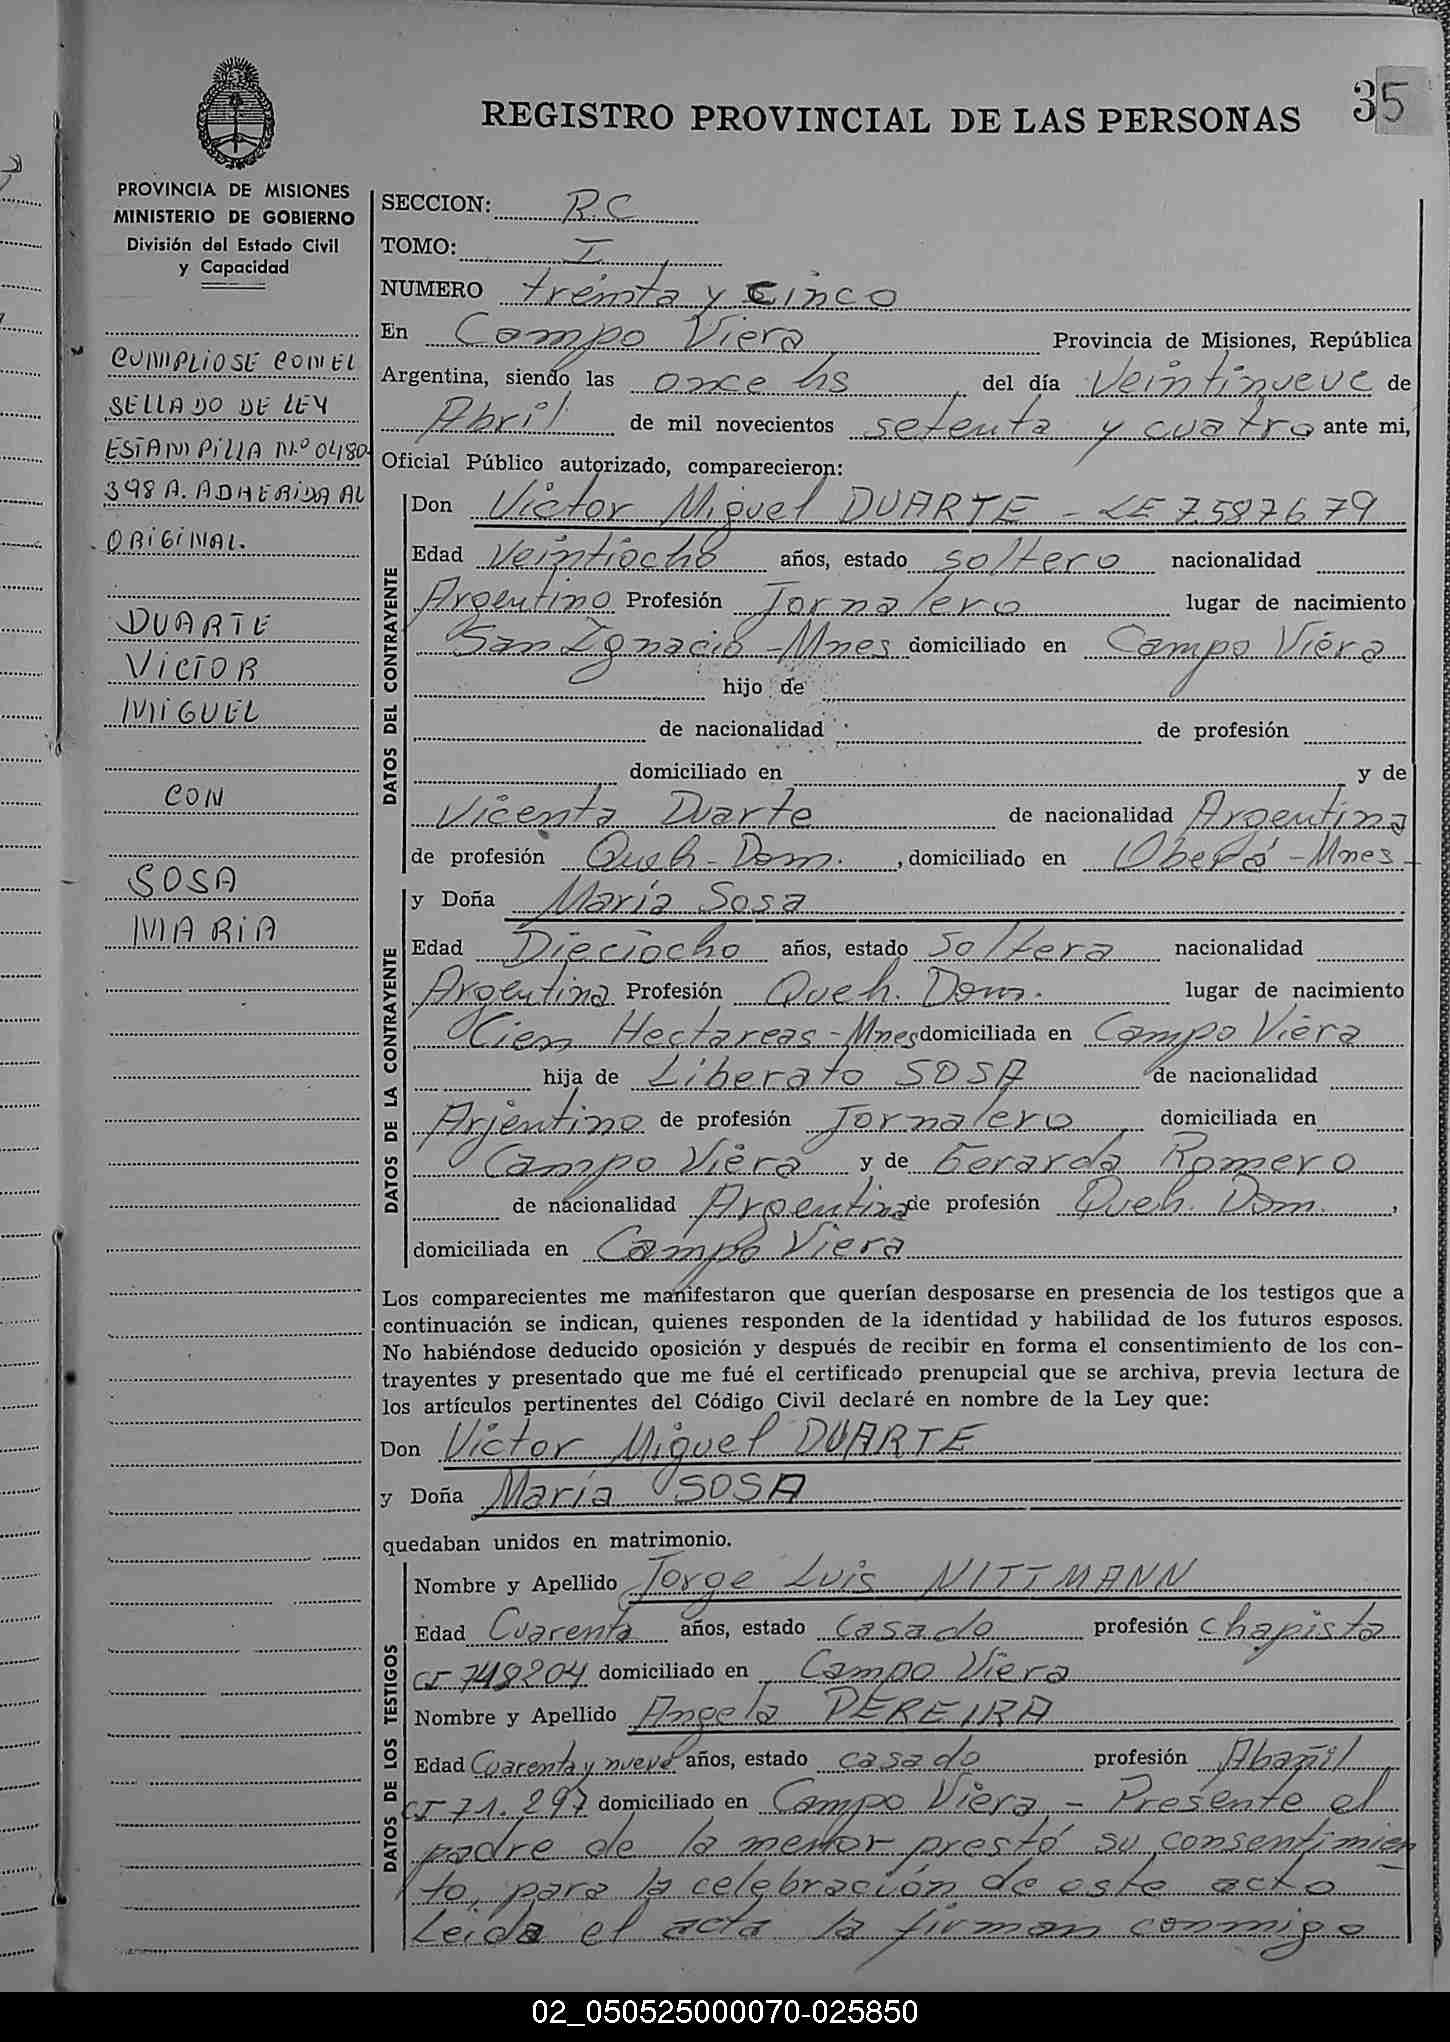 REGISTRO PROVINCIAL DE LAS PERSONAS 35
PROVINCIA DE MISIONES
MINISTERIO DE GOBIERNO
División del Estado Civil
y Capacidad
CUMPLIOSE CON EL
SELLADO DE LEY
ESTAMPILLA Nº 0480
398 A. ADHERIDA AL
ORIGINAL.
DUARTE
VICTOR
MIGUEL
CON
SOSA
MARIA
SECCION: R.C
TOMO: I
NUMERO treinta y cinco
En Campo Viera Provincia de Misiones, República
Argentina, siendo las once hs del día Veintinueve de
Abril de mil novecientos setenta y cuatro ante mi,
Oficial Público autorizado, comparecieron:
DATOS DEL CONTRAYENTE
Don Victor Miguel DUARTE - LE 7.587679
Edad Veintiocho años, estado soltero nacionalidad
Argentino Profesión Jornalero lugar de nacimiento
San Ignacio - Mnes domiciliado en Campo Viera
hijo de
de nacionalidad de profesión
domiciliado en y de
Vicenta Duarte de nacionalidad Argentina
de profesión Queh. Dom. , domiciliado en Oberá - Mnes -
DATOS DE LA CONTRAYENTE
y Doña María Sosa
Edad Dieciocho años, estado Soltera nacionalidad
Argentina Profesión Queh. Dom. lugar de nacimiento
Cien Hectareas - Mnes domiciliada en Campo Viera
hija de Liberato SOSA de nacionalidad
Arjentino de profesión Jornalero domiciliada en
Campo Viera y de Gerarda Romero
de nacionalidad Argentina de profesión Queh. Dom. ,
domiciliada en Campo Viera
Los comparecientes me manifestaron que querían desposarse en presencia de los testigos que a
continuación se indican, quienes responden de la identidad y habilidad de los futuros esposos.
No habiéndose deducido oposición y después de recibir en forma el consentimiento de los con-
trayentes y presentado que me fué el certificado prenupcial que se archiva, previa lectura de
los artículos pertinentes del Código Civil declaré en nombre de la Ley que:
Don Victor Miguel DUARTE
y Doña María SOSA
quedaban unidos en matrimonio.
DATOS DE LOS TESTIGOS
Nombre y Apellido Jorge Luis NITTMANN
Edad Cuarenta años, estado casado profesión chapista
CI 748204 domiciliado en Campo Viera
Nombre y Apellido Angela PEREIRA
Edad Cuarenta y nueve años, estado casado profesión Abañil
CI 71.297 domiciliado en Campo Viera - Presente el
padre de la menor prestó su consentimien
to, para la celebración de este acto
Leida el acta la firman conmigo
02_050525000070-025850